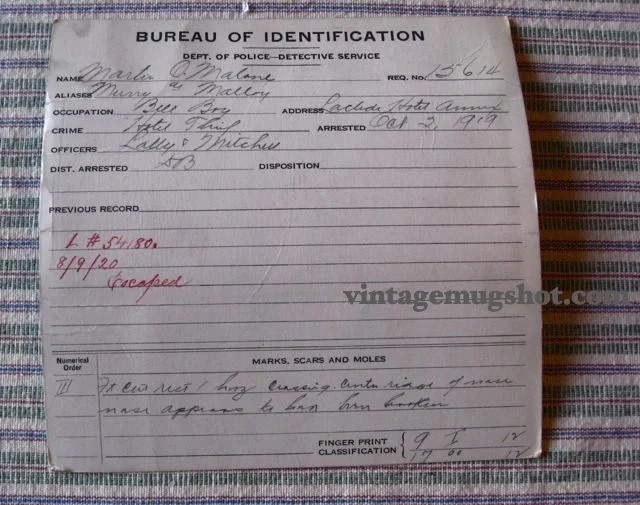 BUREAU OF IDENTIFICATION
DEPT. OF POLICE—DETECTIVE SERVICE
NAME Martin O. Malone REQ. No. 15614
ALIASES Murry Malloy
OCCUPATION Bell Boy ADDRESS Laclede Hotel Annex
CRIME Hotel Thief ARRESTED Oct 2, 1919
OFFICERS Lally & Mitchell
DIST. ARRESTED DB DISPOSITION
PREVIOUS RECORD
L # 54180.
8/9/20
Escaped
vintagemugshot.com
Numerical Order MARKS, SCARS AND MOLES
III cut rect / horz crossing center ridge of nose
nose appears to have been broken
FINGER PRINT 9 I 12
CLASSIFICATION 17 00 12